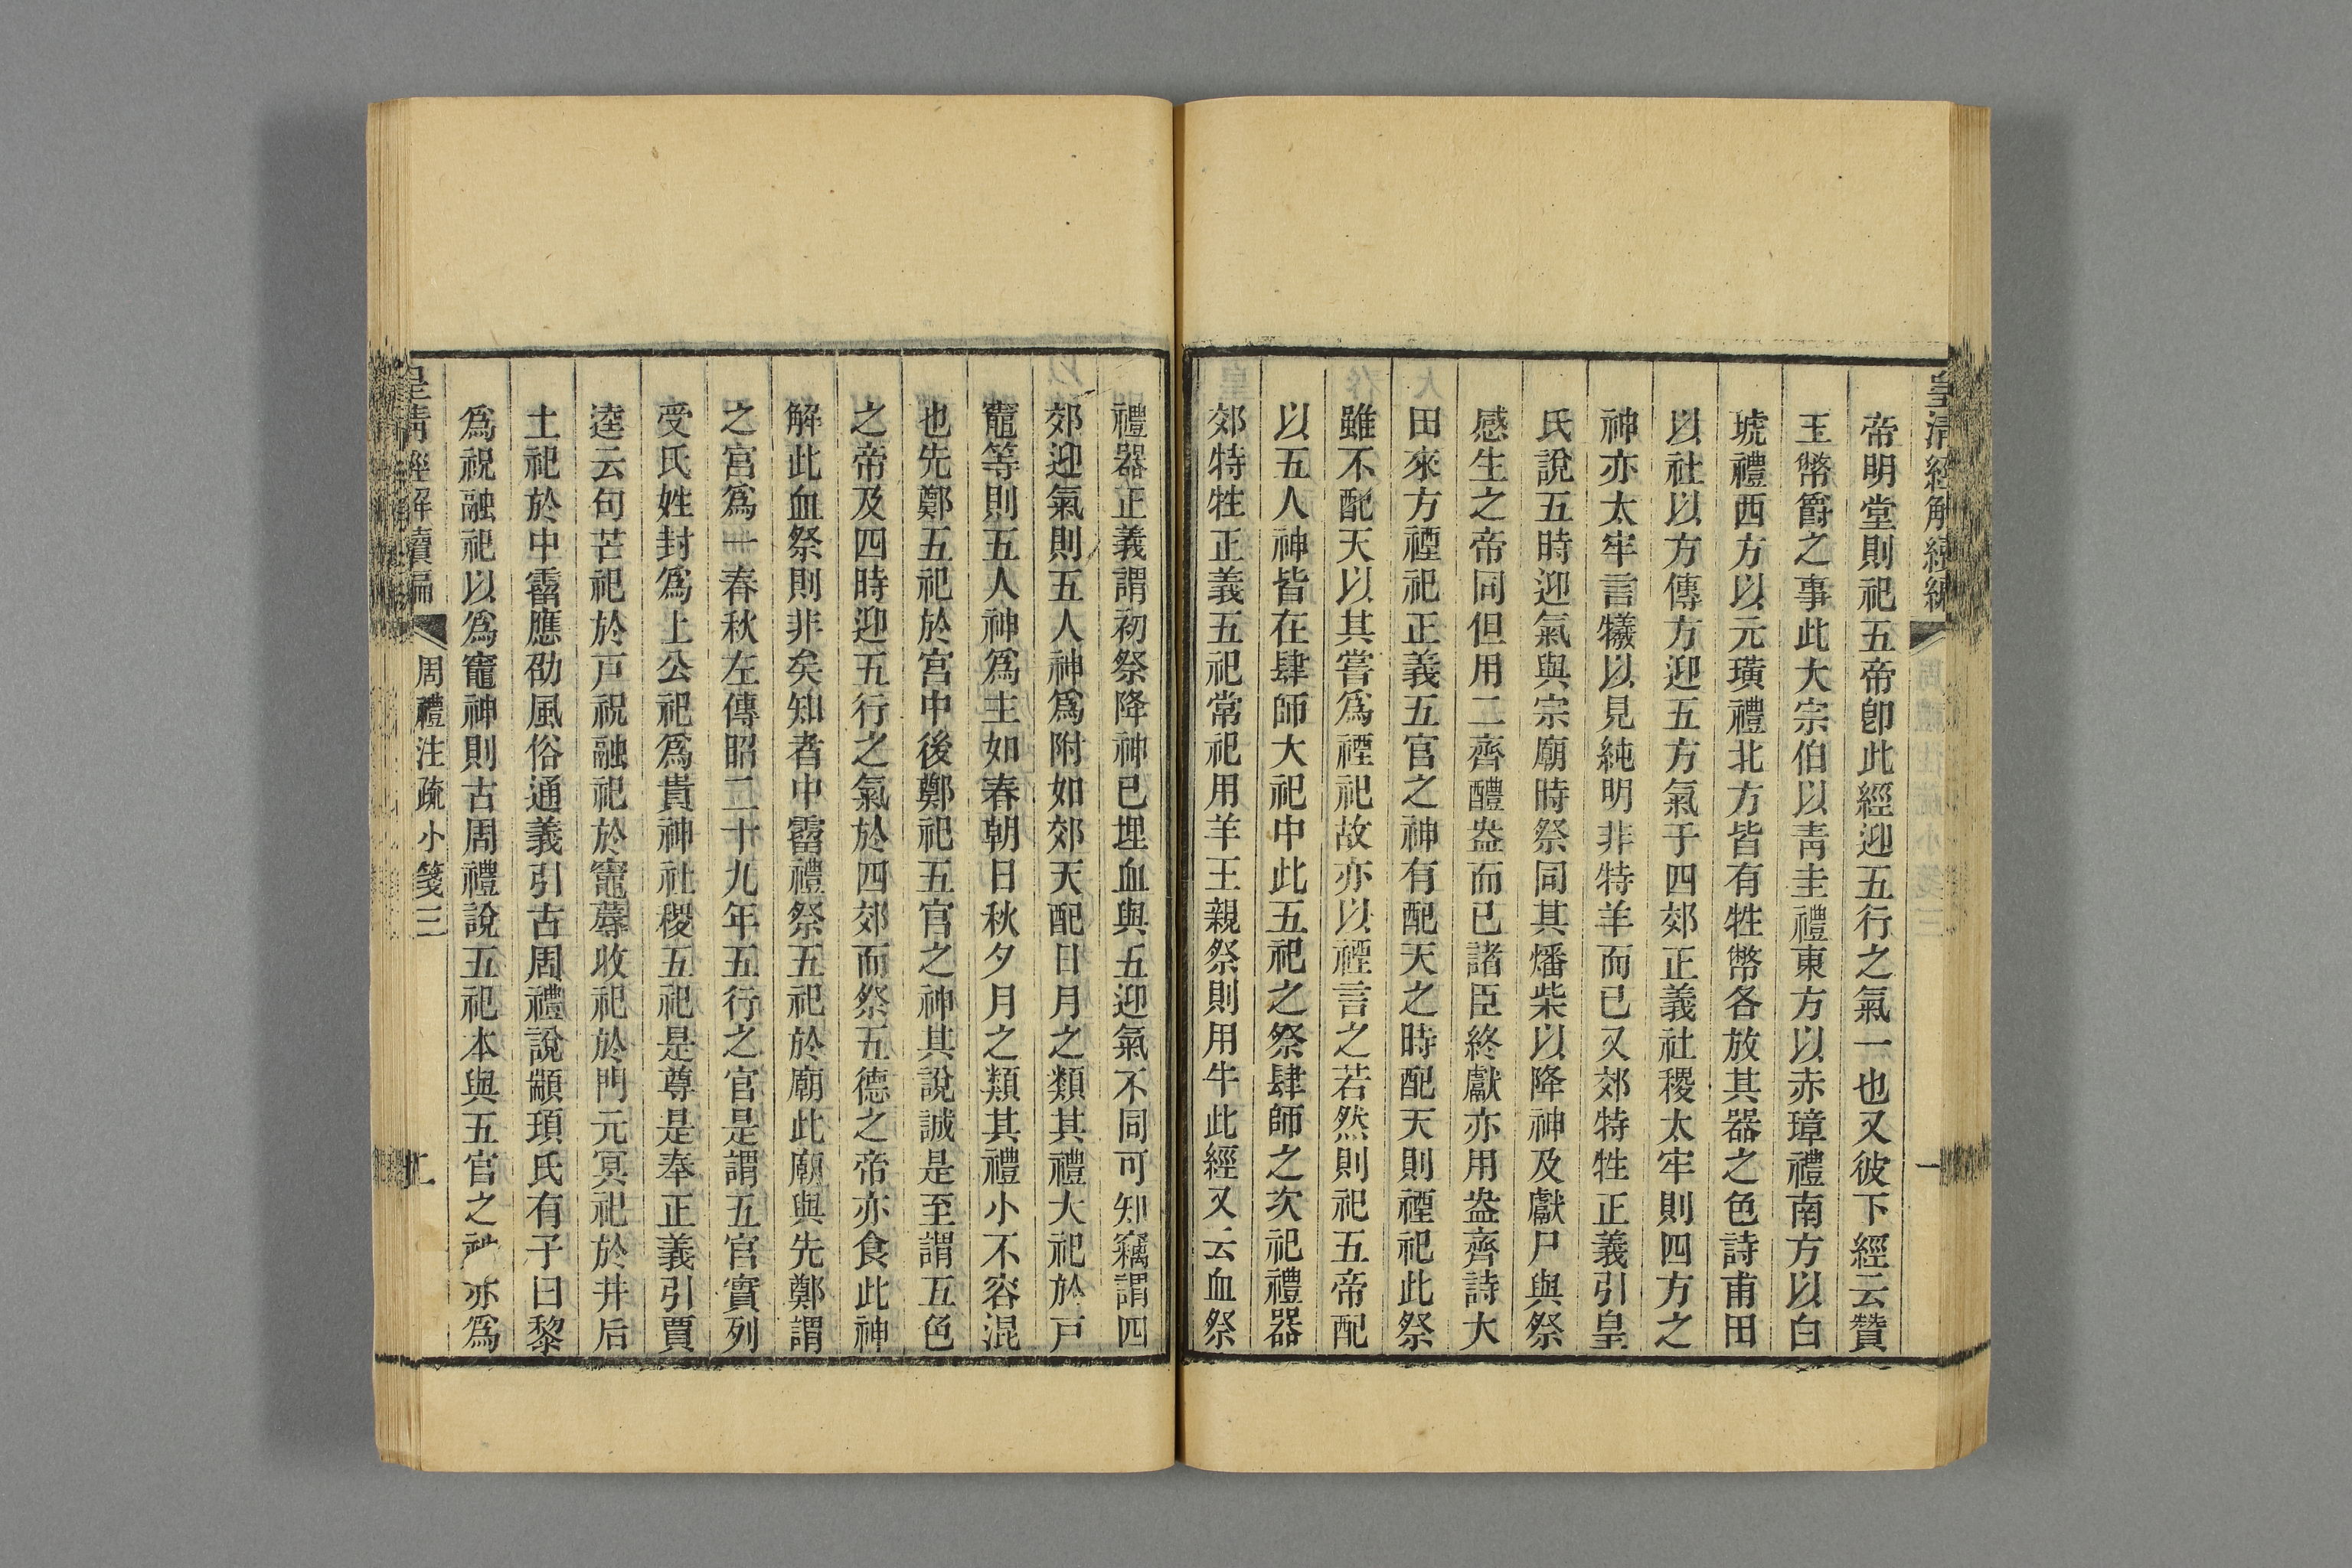 皇清經解續編
一
帝明堂則祀五帝卽此經迎五行之氣一也又彼下經云贊
玉幣爵之事此大宗伯以靑圭禮東方以赤璋禮南方以白
琥禮西方以元璜禮北方皆有牲幣各放其器之色詩甫田
以社以方傳方迎五方氣于四郊正義社稷太牢則四方之
神亦太牢言犧以見純明非特羊而已又郊特牲正義引皇
氏說五時迎氣與宗廟時祭同其燔柴以降神及獻尸與祭
感生之帝同但用二齊醴盎而已諸臣終獻亦用盎齊詩大
田來方禋祀正義五官之神有配天之時配天則禋祀此祭
雖不配天以其嘗爲禋祀故亦以禋言之若然則祀五帝配
以五人神皆在肆師大祀中此五祀之祭肆師之次祀禮器
郊特牲正義五祀常祀用羊王親祭則用牛此經又云血祭
禮器正義謂初祭降神已埋血與五迎氣不同可知竊謂四
郊迎氣則五人神爲附如郊天配日月之類其禮大祀於戶
竈等則五人神爲主如春朝日秋夕月之類其禮小不容混
也先鄭五祀於宮中後鄭祀五官之神其說誠是至謂五色
之帝及四時迎五行之氣於四郊而祭五德之帝亦食此神
解此血祭則非矣知者中霤禮祭五祀於廟此廟與先鄭謂
之宮爲一春秋左傳昭二十九年五行之官是謂五官實列
受氏姓封爲上公祀爲貴神社稷五祀是尊是奉正義引賈
逵云句芒祀於戸祝融祀於竈蓐收祀於門元冥祀於井后
土祀於中霤應劭風俗通義引古周禮說顓頊氏有子曰黎
爲祝融祀以爲竈神則古周禮說五祀本與五官之神亦爲
皇清經解續編
周禮注疏小箋三